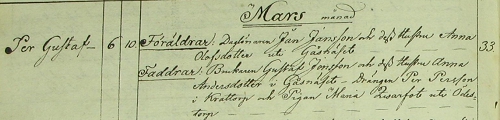 Mars månad
Per Gustaf- 6 10. Föräldrar: Daglönaren Jan Jansson och deß Hustru Anna 33.
Olofsdotter uti Gåsnäset
Faddrar: Brukaren Gustaf Jonsson och deß Hustru Anna
Andersdotter i Gåsnäset - Drängen Per Persson
i och Pigan Maria uti
torp